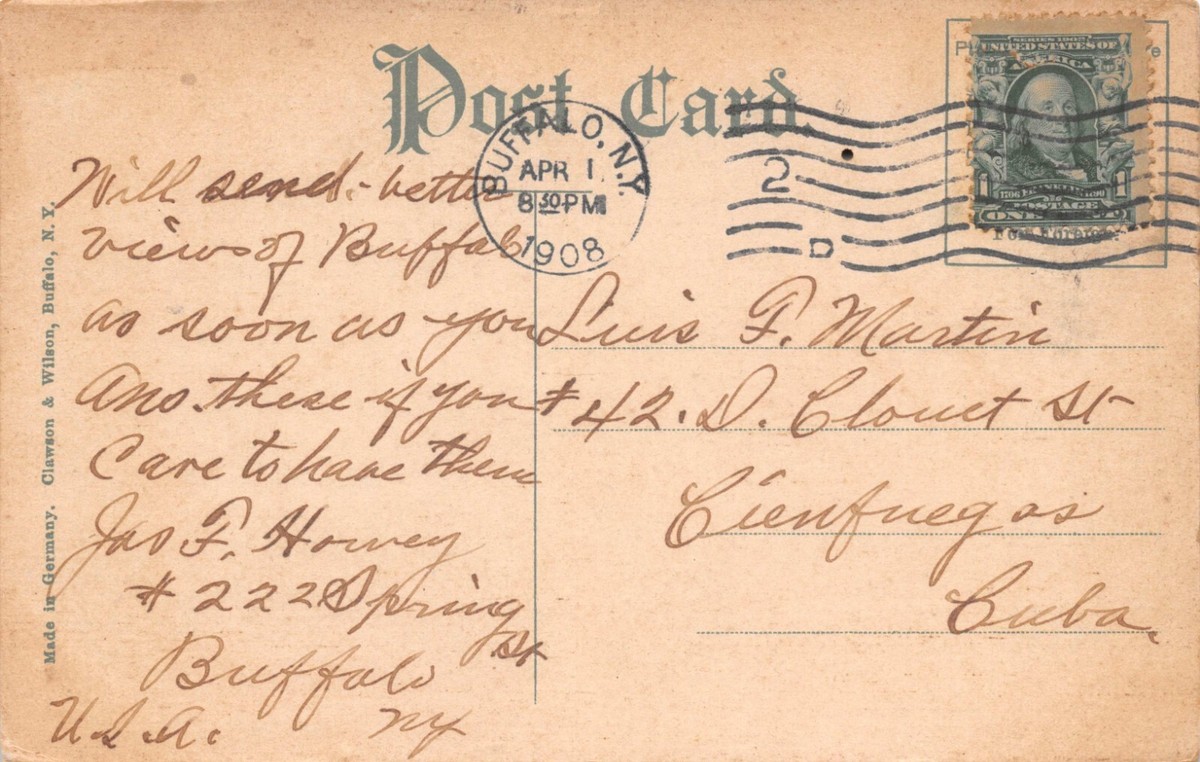 Post Card.
BUFFALO, N.Y.
APR 1
8 30 PM
1908
2
D
SERIES 1902
UNITED STATES OF
AMERICA
1706 FRANKLIN 1790
POSTAGE
ONE
For Foreign.
Will send better
views of Buffalo
as soon as you
Ans. these if you
Care to have them
Jas F. Howey
# 222 Spring
St
Buffalo
NY
U.S.A.
Luis F. Martin
# 42. D. Clouet St
Cienfuegos
Cuba.
Made in Germany. Clawson & Wilson, Buffalo, N. Y.